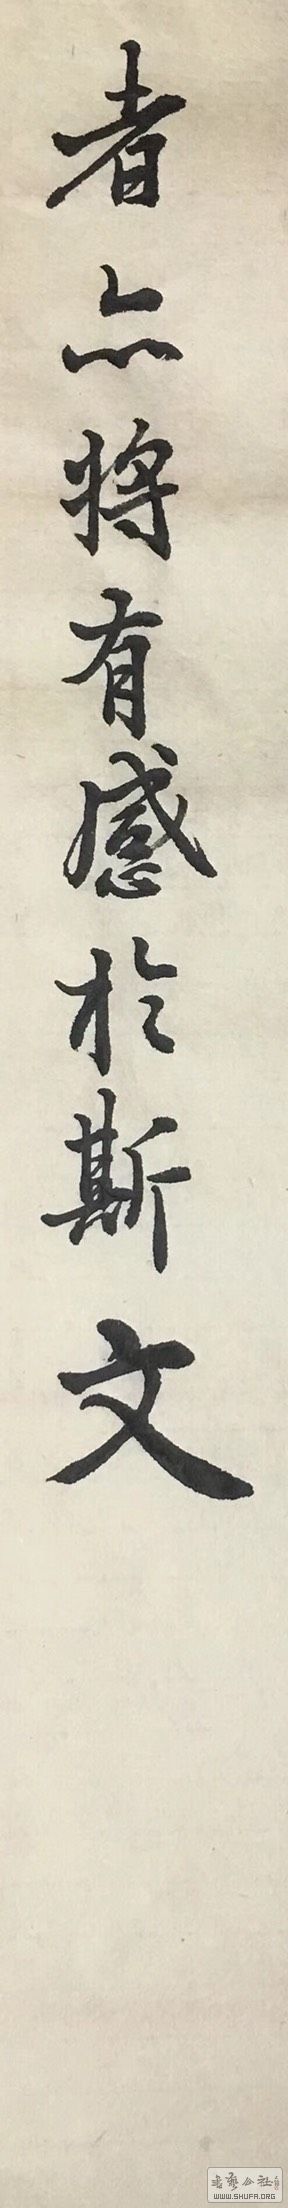 者亦将有感於斯文
書藝公社
WWW.SHUFA.ORG